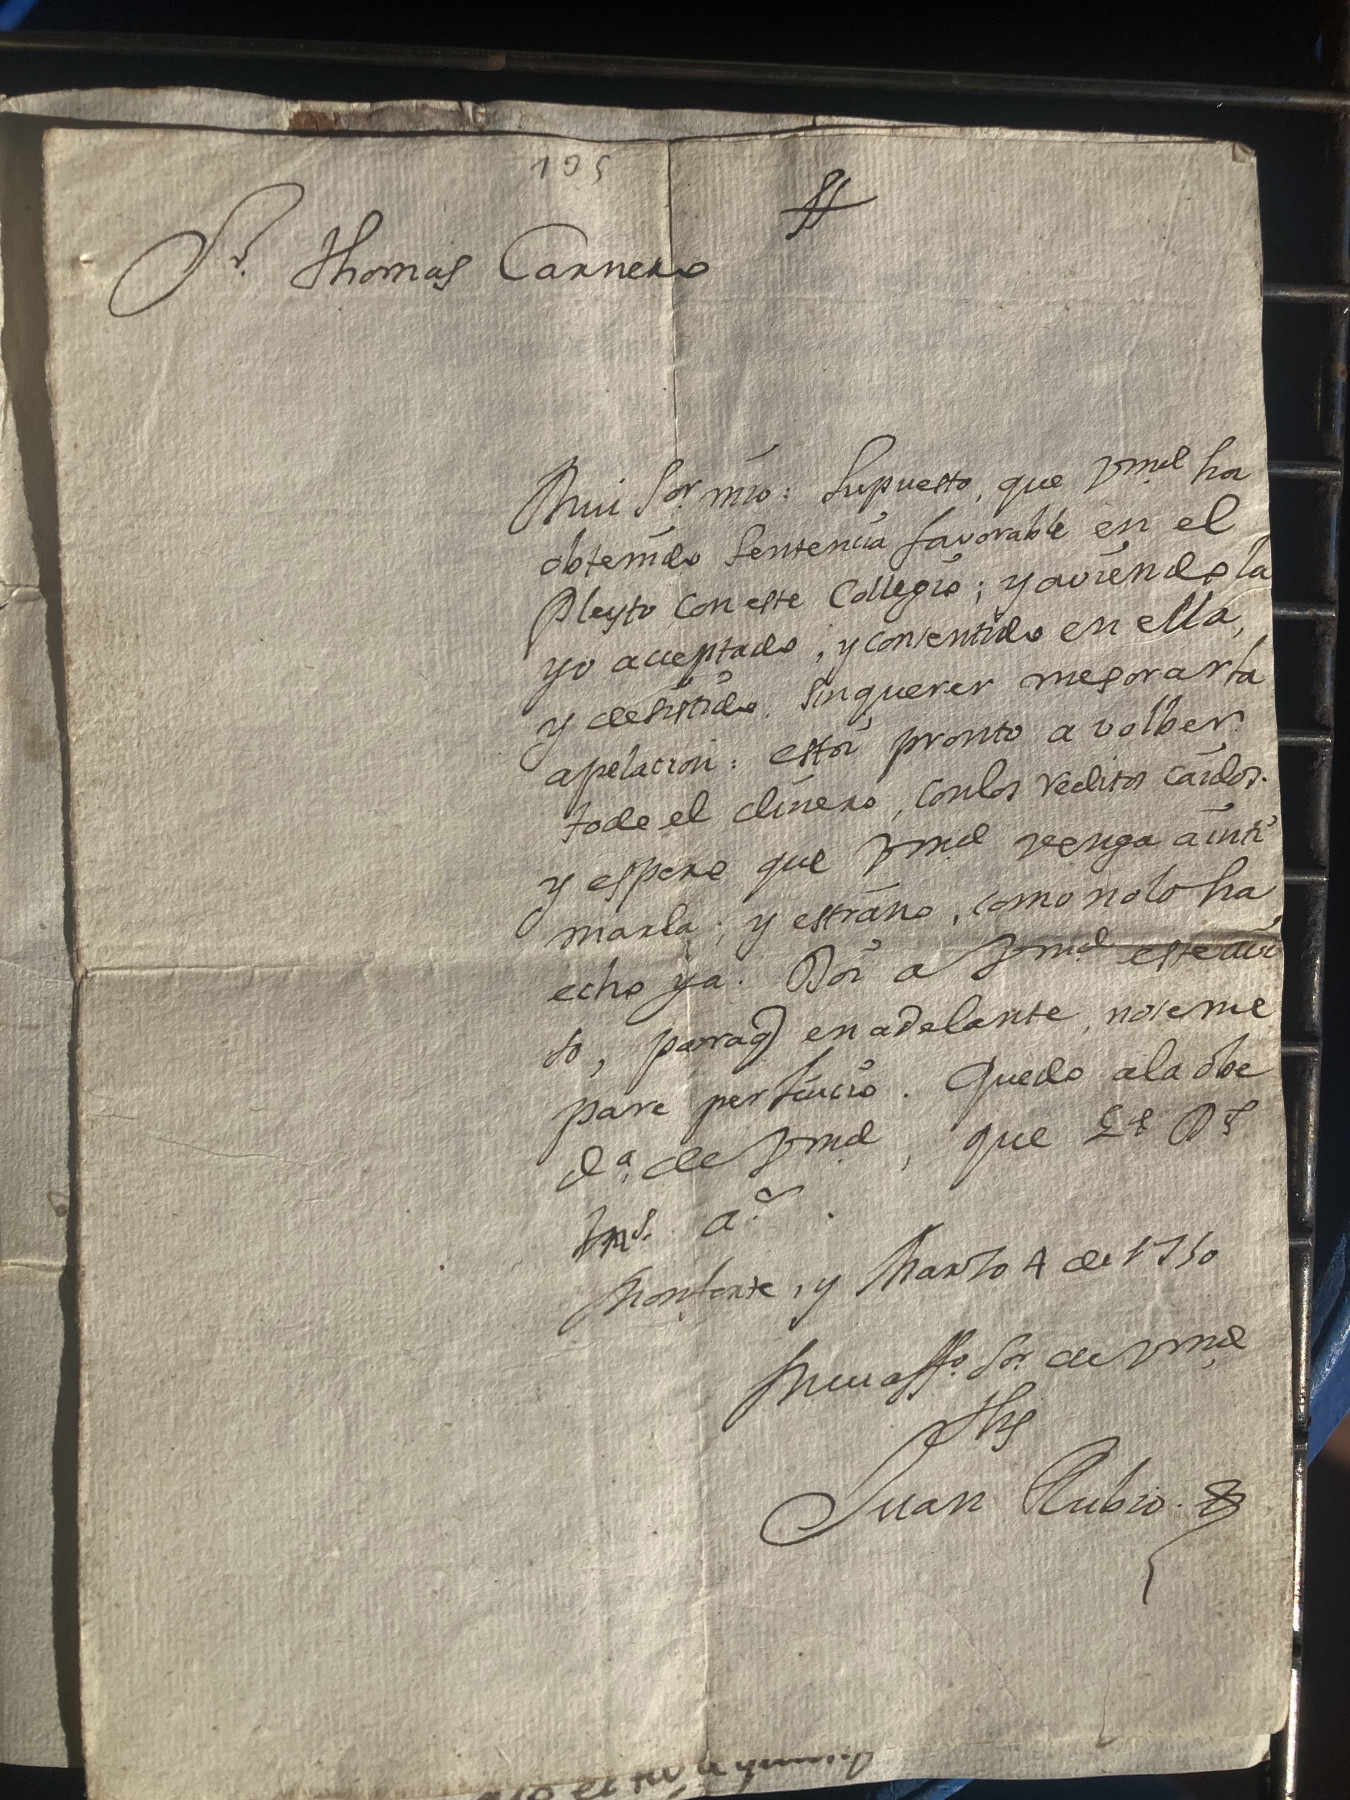 195
Sr. Thomas Carnero
Mui Sor. mio: Supuesto, que Vmd ha
obtenido Sentencia favorable en el
Pleyto con este Collegio; y aviendola
yo acceptado, y consentido en ella,
y desistido. sin querer mejorar la
apelacion: estoi pronto a volber
todo el dinero, con los reditos caidos.
y espero que Vmd venga a inti
marla; y estraño, como no lo ha
echo ya. Doi a Vmd este avi
so, para q en adelante, no se me
pare perjuicio. Quedo a la obe
da. de Vmd, que
ms. as.
Monforte, y Marzo 4 de 1750
Mui affo. Sor. de Vmd
Jhs
Juan Rubio.